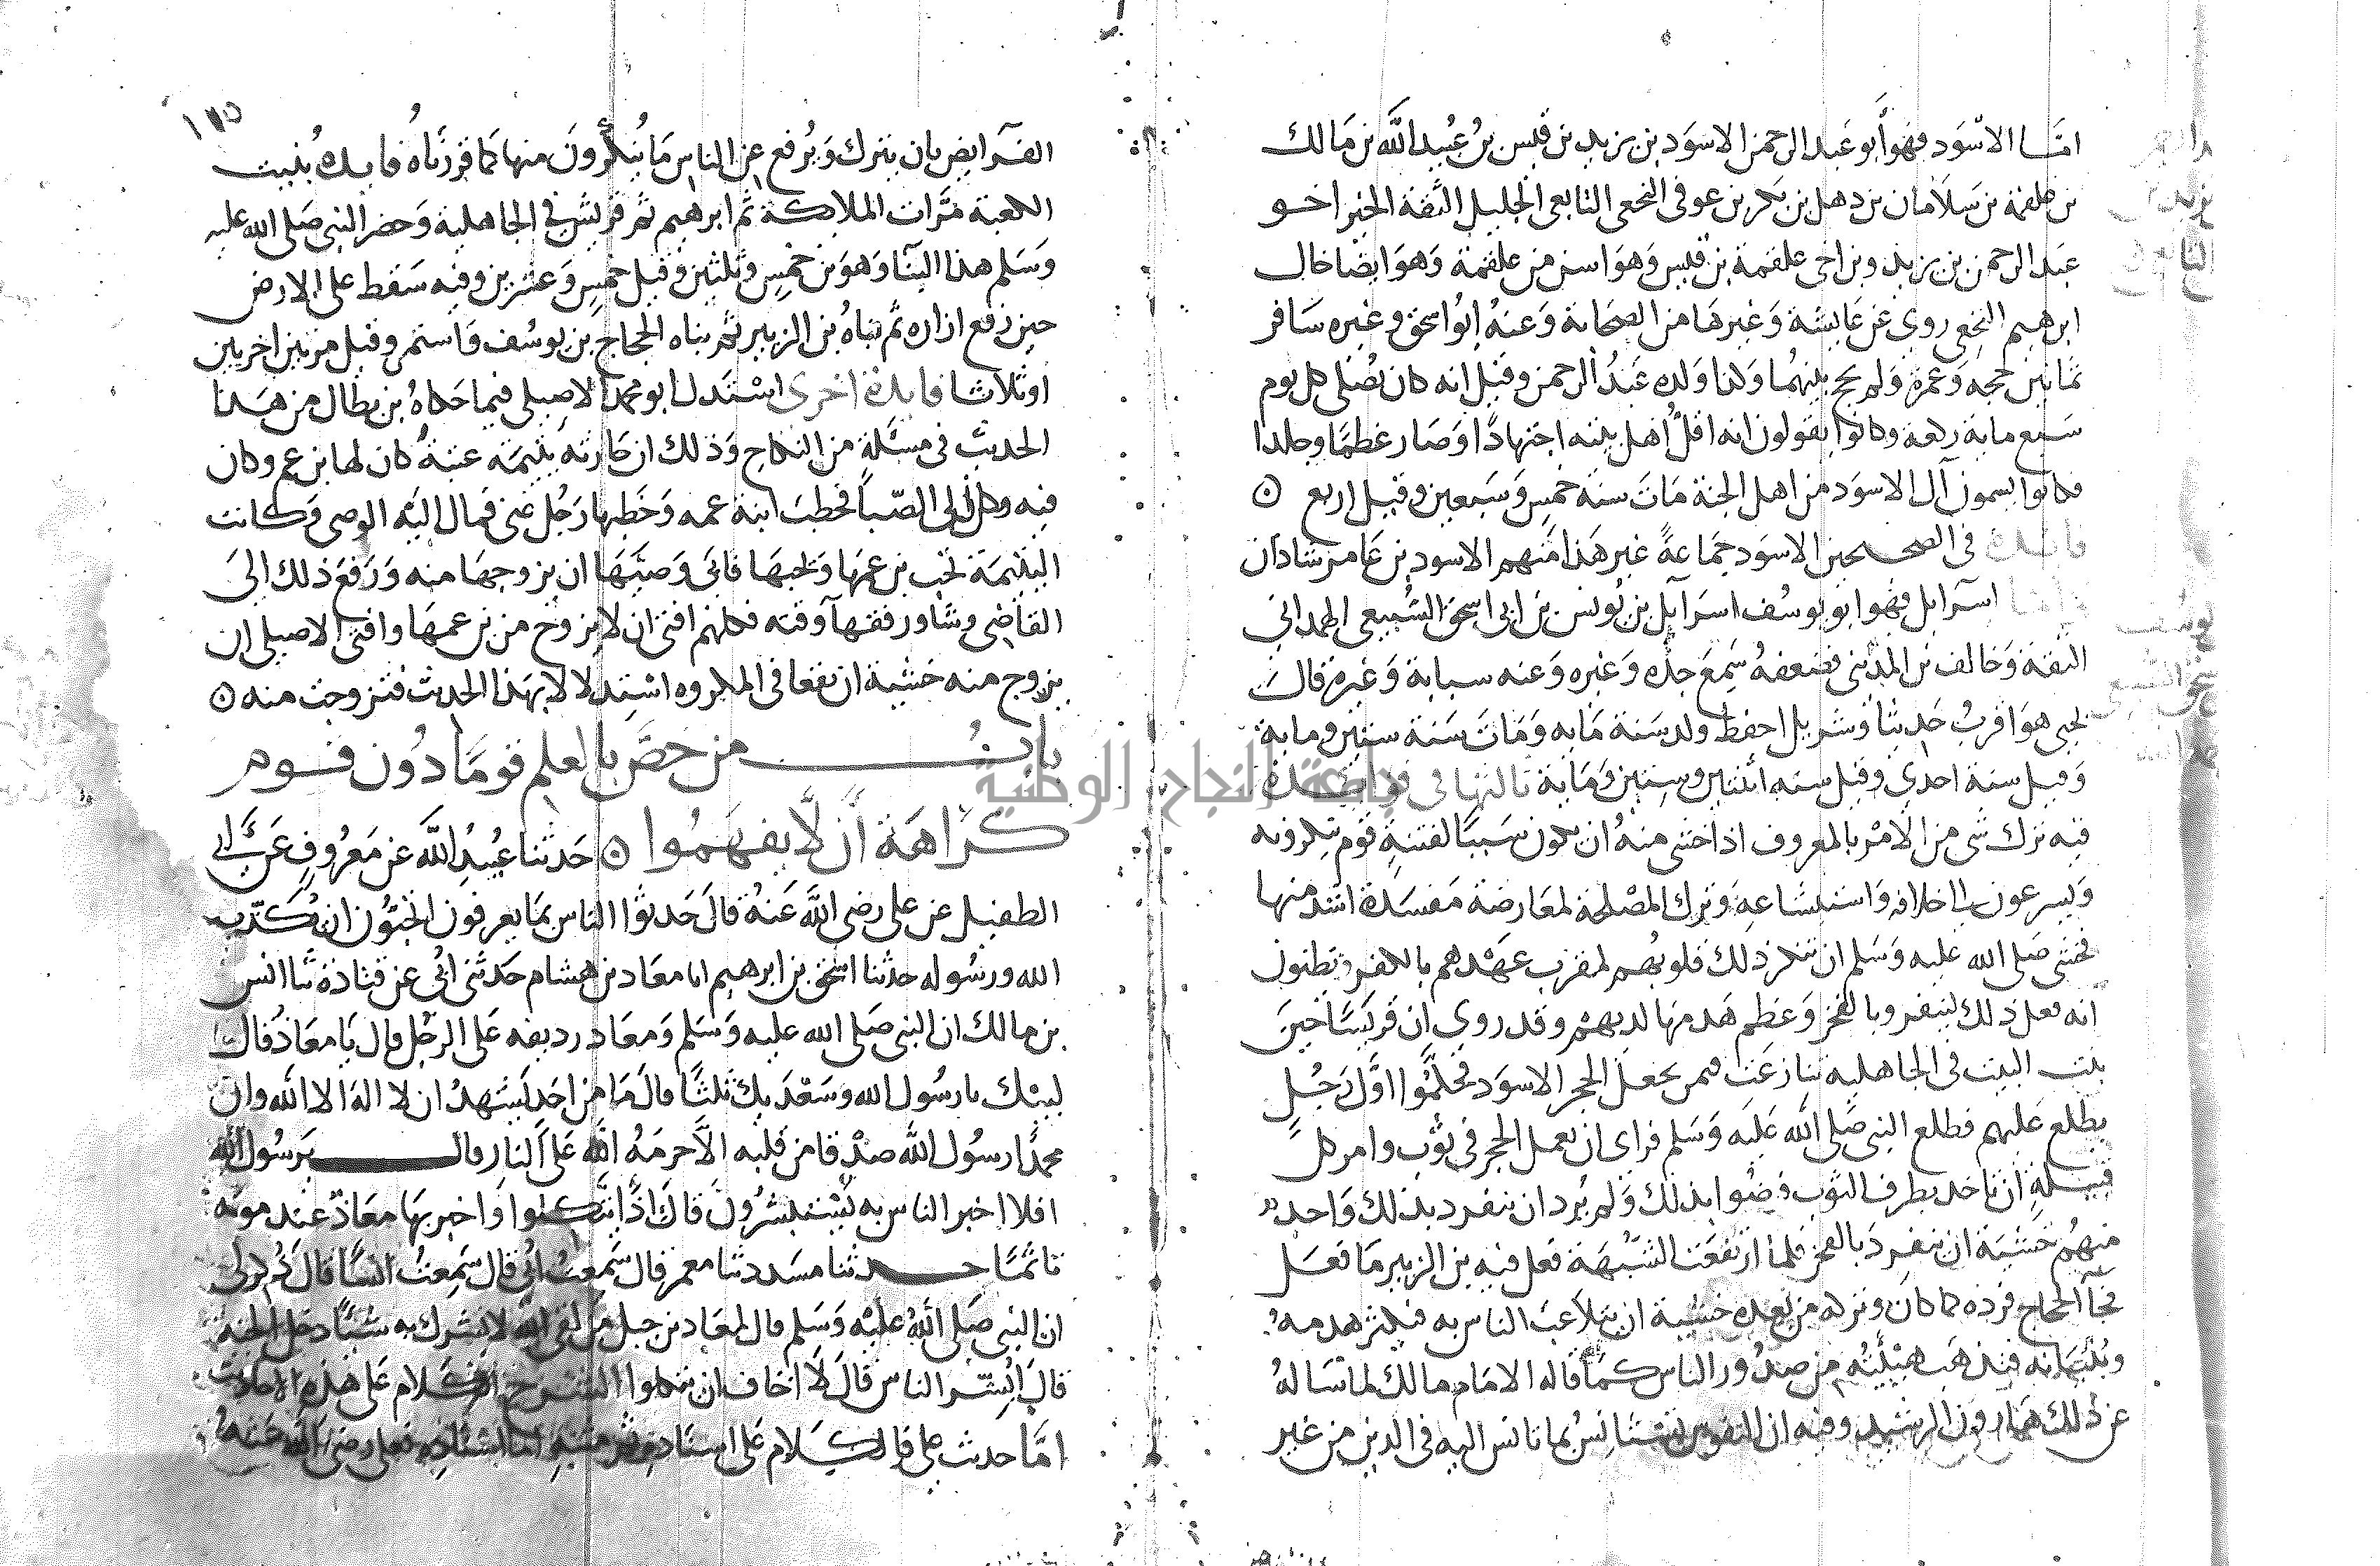 امَّا الاسْوَد فهو أبو عَبد الرحمن الاسوَد بن يزيد بن قيس بن عُبيد الله بن مَالك
بن علقمة بن سَلامَان بن دهل بن بكر بن عوف النخعي التابعي الجليل الثقة الخير اخو
عَبد الرحمن بن يزيد وبن اخي علقمة بن قيس وهوَ اسن من علقمة وَهوَ ايضا خال
ابرهيم النخعي روى عن عايشة وَغيرهَا من الصحابة وَعنهُ ابُو اسحق وغيره سَافر
ثمانين حجه وَعمرة وَلم يجمع بينهُما وكذا وَلده عَبدُ الرحمن وقيل انه كان يُصَلى كل يوم
سَبع ماية ركعة وكانوا يقولون انه اقلّ اهل بيته اجتهادًا وَصَار عَظمًا وجلدا
وكانوا يسمون آل الاسوَد من اهل الجنة مَاتَ سنة خمسٍ وَسَبعين وقيل اربع ن
فايدة في الصحيحين الاسوَد جمَاعةً غير هَذا مِنهم الاسود بن عَامر شاذان
وأما اسرآيل فهو ابو يوسُف اسرَآيل بن يُونس بن ابي اسحق السَّبيعي الهمداني
الثقة وَخالف بن المديني فضعفهُ سَمِعَ جده وَغيره وَعنه شبابة وَغيره قال
يحيى هوَ اقربُ حَديثاً وَشريك احفظ ولد سَنة مَايه وَمَاتَ سَنة ستين وماية
وَقيل سنة احدى وقيل سنه اثنتين وستين وَمَاية ثالثها في فوايده
فيه ترك شي من الامْر بالمعروف اذا خشى منهُ ان يكون سَببًا لفتنةِ قوم ينكرونه
وَيسرعون الى خلافه وَاستبشاعهِ وَترك المصْلحة لمعَارضة مَفسَدة اشد منها
فخشى صَلى الله عليه وَسَلم ان تنكر ذلك قلوبُهم لقرب عهْدهم بالكفر ويظنون
انه فعل ذلك لينفرد بالفخر وَعَظم هَدمهَا لديهمْ وقد روي ان قريشًا حينَ
بنت البيت في الجاهليه تنازعَت فيمن يجعل الحجر الاسوَد فحكَّمُوا اوَّل رَجُلٍ
يطلع عَليهم فطلع النبي صَلى الله عَليه وَسَلم فراى ان يجعل الحجر في ثوْب وامر كل
قبيلةٍ ان تاخذ بطرف الثوب فرضُوا بذلك وَلم يُرد ان ينفرد بذلك وَاحد
منهُم خَشيَة ان ينفردَ بالفخر فلما ارتفعَت الشبْهَة فعل فيه بن الزبير مَا فعَل
فجآ الحجاج فرَده كما كان وتركه من بعده خشية ان يتلاعَب الناس به فيكثر هدمهُ
وبُنيانه فيذهَب هَيْبتُه من صدُور الناس كمَا قاله الامَام مالك لما سَالهُ
عن ذلك هَارون الرشيد وفيه ان النفوس تستانسُ بما تانس اليه في الدين من غير
١٢٥
الفرآيض بان يترك وَيُرفع عن الناس مَا يُنكرُونَ منها كما قررناه فايدة بُنيت
الكعبة مَرَّات الملايكة ثم ابرهيم ثم قريش في الجاهلية وَحضر النبي صَلى الله عليه
وَسَلم هذا البنآ وَهوَ بن خمسٍ وثلثين وقيل خمس وَعشرين وفيه سَقط على الارض
حين رَفع ازاره ثم بناهُ بن الزبير ثم بناه الحجاج بن يوسُف وَاستمر وقيل مرتين اخريين
او ثلاثا فايدة اخرى اسْتدل ابو محمد الاصيلي فيما حَكاهُ بن بطال من هَذا
الحديث في مسْئلةٍ من النكاح وَذلك ان جَارته يتيمَة غنيَّةُ كان لها بن عم وكان
فيه وكان الى الصّبا فخطبَ ابنة عمه وَخَطبها رَجُل غني فمال اليَه الوصى وَكانت
اليتيمَة تحب بن عمها وَيحبهَا فابَى وَصيهَا ان يزوجهَا منه وَرَفع ذلك الىَ
القاضي وشاور فقهآ وقته فكلهم افتى ان لا يزوج من بن عمهَا وافتى الاصيلي ان
يزوج منه خشية ان يقعا في المكروه استدلالا بهذا الحديث فتزوجت منه ن
بابُ مَن خصَّ بالعلم قومًا دُون قوم
كرَاهَة أن لا يفهَمُوا ن حَدثنا عُبيدُ الله عن مَعرُوفٍ عَن ابى
الطفيل عن على رضى الله عَنهُ قالَ حَدثوا الناس بمَا يعرفون اتحبُّون ان يُكذَّب
الله ورسُوله حدثنا اسحق بن ابرهيم انا معاذ بن هشام حَدثنى ابى عن قتادة ثنا انس
بن مالكَ ان النبي صَلى الله عليه وَسَلم وَمعَاذ رديفه عَلى الرحْل قال يَا معَاذ قالَ
لبيْك يا رسُول الله وسَعْدَيك ثلثًا قالَ مَا من احَدٍ يَشهدُ ان لا الهَ الا الله وان
محمدًا رسُول الله صدْقا من قلبه الاَّ حرمَهُ الله عَلى النار قال يا رَسُول الله
افلا اخبر الناس به يَستبشرُونَ قالَ اذًا يتَّكلوا وَاخبر بهَا معَاذ عند موته
تاثمًا حدثنا مسَدد ثنا معمر قال سَمِعتُ ابي قال سَمِعتُ انسًا قالَ ذُكر لى
ان النبي صَلى الله عليْه وَسَلم قال لمعَاذ بن جبل من لقى الله لا يشرك به شيئًا دخل الجنة
قالَ اُبشر الناس قالَ لا اخاف ان يتكلوا الشرح الكلام على هذه الاحاديث
امَّا حديث على فالكلام عَلى اسناده ثم متنه اما اسناده فعلى رضى الله عَنهُ
جامعة النجاح الوطنية